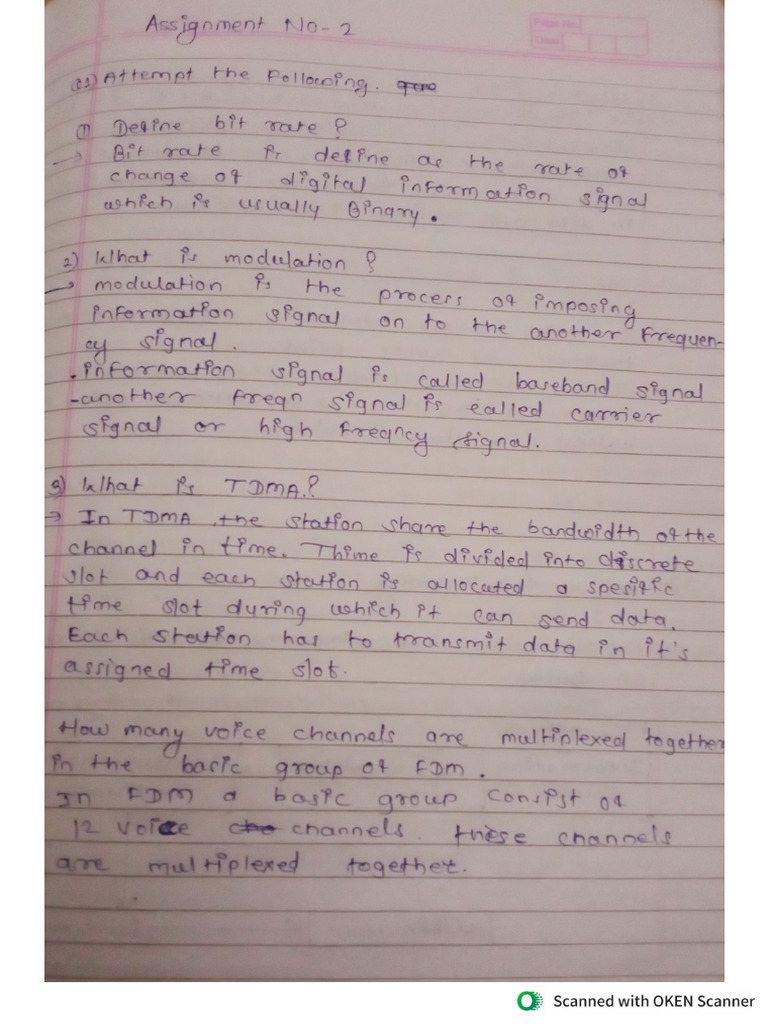 Assignment No-2
Q1) Attempt the Following.
① Define bit rate?
→ Bit rate is define as the rate of
change of digital information signal
which is usually Binary.
2) What is modulation?
→ modulation is the process of imposing
information signal on to the another frequen-
cy signal.
.information signal is called baseband signal
-another freqn signal is called carrier
signal or high freqncy signal.
3) What is TDMA.?
→ In TDMA, the station share the bandwidth of the
channel in time. Thime is divided into discrete
slot and each station is allocated a spesific
time slot during which it can send data.
Each station has to transmit data in it's
assigned time slot.
How many voice channels are multiplexed together
in the basic group of FDM.
In FDM a basic group consist of
12 voice channels. these channels
are multiplexed together.
Scanned with OKEN Scanner